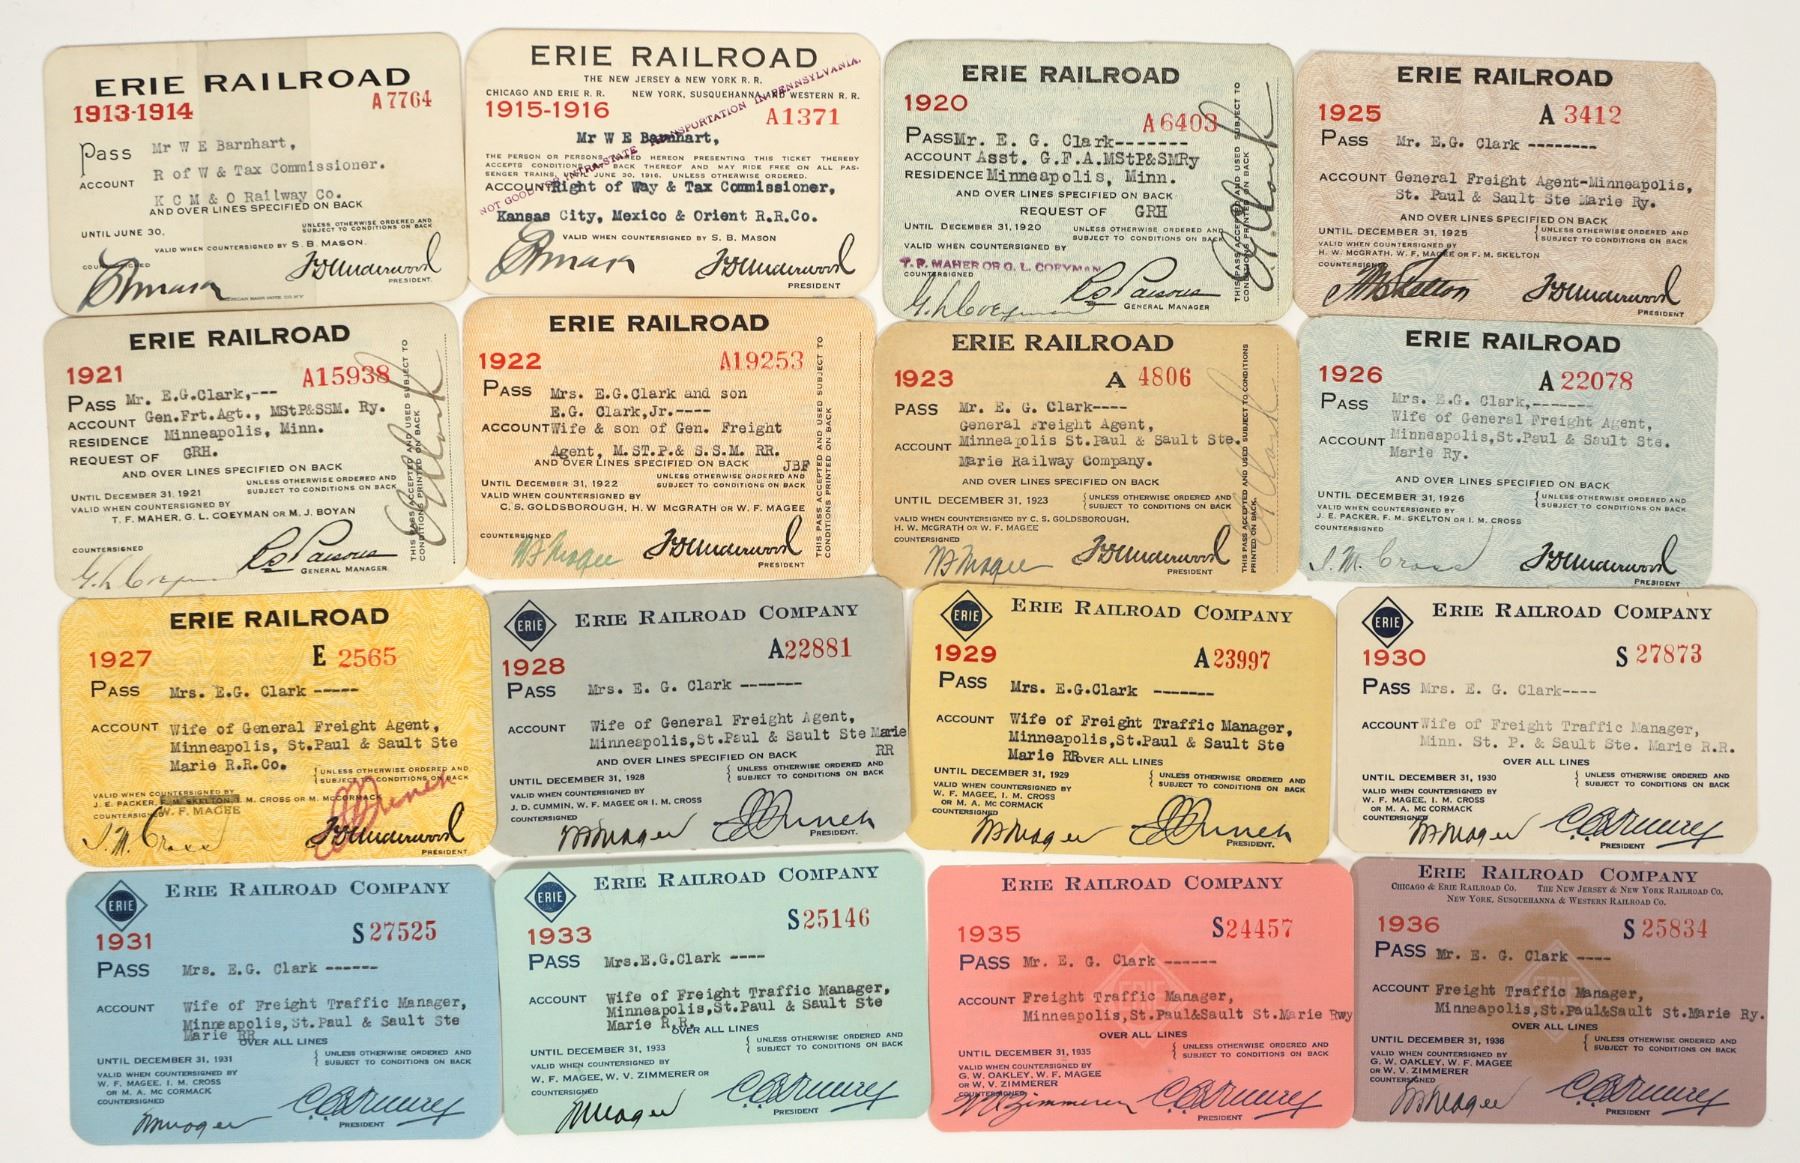 ERIE RAILROAD
1913-1914
A7764
Pass Mr W E Barnhart,
ACCOUNT R of W & Tax Commissioner.
K C M & O Railway Co.
AND OVER LINES SPECIFIED ON BACK
UNTIL JUNE 30,
UNLESS OTHERWISE ORDERED AND
SUBJECT TO CONDITIONS ON BACK
VALID WHEN COUNTERSIGNED BY S. B. MASON.
COUNTERSIGNED
SBMason FDUnderwood
PRESIDENT.
ERIE RAILROAD
THE NEW JERSEY & NEW YORK R. R.
CHICAGO AND ERIE R. R. NEW YORK, SUSQUEHANNA, AND WESTERN R. R.
1915-1916
A1371
NOT GOOD FOR INTRA-STATE TRANSPORTATION IN PENNSYLVANIA.
Mr W E Barnhart,
THE PERSON OR PERSONS NAMED HEREON PRESENTING THIS TICKET THEREBY
ACCEPTS CONDITIONS ON BACK THEREOF AND MAY RIDE FREE ON ALL PAS-
SENGER TRAINS, UNTIL JUNE 30, 1916, UNLESS OTHERWISE ORDERED.
ACCOUNT Right of Way & Tax Commissioner,
Kansas City, Mexico & Orient R.R.Co.
VALID WHEN COUNTERSIGNED BY S. B. MASON
SBMason FDUnderwood
PRESIDENT
ERIE RAILROAD
1920
A6403
PASS Mr. E. G. Clark-------
ACCOUNT Asst. G.F.A.MStP&SMRy
RESIDENCE Minneapolis, Minn.
AND OVER LINES SPECIFIED ON BACK
REQUEST OF GRH
UNTIL DECEMBER 31, 1920
UNLESS OTHERWISE ORDERED AND
SUBJECT TO CONDITIONS ON BACK
VALID WHEN COUNTERSIGNED BY
T. F. MAHER OR G. L. COEYMAN
COUNTERSIGNED
G L Coeyman RS Parsons
GENERAL MANAGER
THIS PASS ACCEPTED AND USED SUBJECT TO
CONDITIONS PRINTED ON BACK
E G Clark
ERIE RAILROAD
1925
A 3412
PASS Mr. E.G. Clark --------
ACCOUNT General Freight Agent-Minneapolis,
St. Paul & Sault Ste Marie Ry.
AND OVER LINES SPECIFIED ON BACK
UNTIL DECEMBER 31, 1925
UNLESS OTHERWISE ORDERED AND
SUBJECT TO CONDITIONS ON BACK
VALID WHEN COUNTERSIGNED BY
H. W. MCGRATH, W. F. MAGEE OR F. M. SKELTON
COUNTERSIGNED
FM Skelton FDUnderwood
PRESIDENT
ERIE RAILROAD
1921
A15938
PASS Mr. E.G.Clark,---
ACCOUNT Gen.Frt.Agt., MStP&SSM. Ry.
RESIDENCE Minneapolis, Minn.
REQUEST OF GRH.
AND OVER LINES SPECIFIED ON BACK
UNTIL DECEMBER 31, 1921
UNLESS OTHERWISE ORDERED AND
SUBJECT TO CONDITIONS ON BACK
VALID WHEN COUNTERSIGNED BY
T. F. MAHER, G. L. COEYMAN OR M. J. BOYAN
COUNTERSIGNED
G L Coeyman RS Parsons
GENERAL MANAGER
THIS PASS ACCEPTED AND USED SUBJECT TO
CONDITIONS PRINTED ON BACK
E G Clark
ERIE RAILROAD
1922
A19253
PASS Mrs. E.G.Clark and son
E.G. Clark,Jr.----
ACCOUNT Wife & son of Gen. Freight
Agent, M.STP.& S.S.M. RR.
AND OVER LINES SPECIFIED ON BACK
JBF
UNTIL DECEMBER 31, 1922
UNLESS OTHERWISE ORDERED AND
SUBJECT TO CONDITIONS ON BACK
VALID WHEN COUNTERSIGNED BY
C. S. GOLDSBOROUGH, H. W McGRATH OR W. F. MAGEE
COUNTERSIGNED
WF Magee FDUnderwood
PRESIDENT
THIS PASS ACCEPTED AND USED SUBJECT TO
CONDITIONS PRINTED ON BACK
ERIE RAILROAD
1923
A 4806
PASS Mr. E. G. Clark----
General Freight Agent,
ACCOUNT Minneapolis St.Paul & Sault Ste.
Marie Railway Company.
AND OVER LINES SPECIFIED ON BACK
UNTIL DECEMBER 31, 1923
UNLESS OTHERWISE ORDERED AND
SUBJECT TO CONDITIONS ON BACK
VALID WHEN COUNTERSIGNED BY C. S. GOLDSBOROUGH,
H. W. McGRATH OR W. F. MAGEE
COUNTERSIGNED
WF Magee FDUnderwood
PRESIDENT
THIS PASS ACCEPTED AND USED SUBJECT TO CONDITIONS
PRINTED ON BACK.
E G Clark
ERIE RAILROAD
1926
A 22078
PASS Mrs. E.G. Clark,-------
Wife of General Freight Agent,
ACCOUNT Minneapolis,St.Paul & Sault Ste.
Marie Ry.
AND OVER LINES SPECIFIED ON BACK
UNTIL DECEMBER 31, 1926
UNLESS OTHERWISE ORDERED AND
SUBJECT TO CONDITIONS ON BACK
VALID WHEN COUNTERSIGNED BY
J. E. PACKER, F. M. SKELTON OR I. M. CROSS
COUNTERSIGNED
I. M. Cross FDUnderwood
PRESIDENT
ERIE RAILROAD
1927
E 2565
PASS Mrs. E.G. Clark -----
ACCOUNT Wife of General Freight Agent,
Minneapolis, St.Paul & Sault Ste
Marie R.R.Co.
UNLESS OTHERWISE ORDERED AND
SUBJECT TO CONDITIONS ON BACK
VALID WHEN COUNTERSIGNED BY
J. E. PACKER, F. M. SKELTON, I. M. CROSS OR M. McCORMACK
W. F. MAGEE
COUNTERSIGNED
I. M. Cross FDUnderwood
PRESIDENT
ERIE
ERIE RAILROAD COMPANY
1928
A22881
PASS Mrs. E. G. Clark -------
ACCOUNT Wife of General Freight Agent,
Minneapolis,St.Paul & Sault Ste Marie
RR
AND OVER LINES SPECIFIED ON BACK
UNTIL DECEMBER 31, 1928
UNLESS OTHERWISE ORDERED AND
SUBJECT TO CONDITIONS ON BACK
VALID WHEN COUNTERSIGNED BY
J. D. CUMMIN, W. F. MAGEE OR I. M. CROSS
COUNTERSIGNED
WF Magee
PRESIDENT.
ERIE
ERIE RAILROAD COMPANY
1929
A23997
PASS Mrs. E.G.Clark -------
ACCOUNT Wife of Freight Traffic Manager,
Minneapolis,St.Paul & Sault Ste
Marie RR OVER ALL LINES
UNTIL DECEMBER 31, 1929
UNLESS OTHERWISE ORDERED AND
SUBJECT TO CONDITIONS ON BACK
VALID WHEN COUNTERSIGNED BY
W. F. MAGEE, I. M. CROSS
OR M. A. MCCORMACK
COUNTERSIGNED
WF Magee
PRESIDENT.
ERIE
ERIE RAILROAD COMPANY
1930
S 27873
PASS Mrs. E. G. Clark----
ACCOUNT Wife of Freight Traffic Manager,
Minn. St. P. & Sault Ste. Marie R.R.
OVER ALL LINES
UNTIL DECEMBER 31, 1930
UNLESS OTHERWISE ORDERED AND
SUBJECT TO CONDITIONS ON BACK
VALID WHEN COUNTERSIGNED BY
W. F. MAGEE, I. M. CROSS
OR M. A. MCCORMACK
COUNTERSIGNED
WF Magee
PRESIDENT
ERIE
ERIE RAILROAD COMPANY
1931
S27525
PASS Mrs. E.G. Clark ------
ACCOUNT Wife of Freight Traffic Manager,
Minneapolis,St.Paul & Sault Ste
Marie RR
OVER ALL LINES
UNTIL DECEMBER 31, 1931
UNLESS OTHERWISE ORDERED AND
SUBJECT TO CONDITIONS ON BACK
VALID WHEN COUNTERSIGNED BY
W. F. MAGEE, I. M. CROSS
OR M. A. MCCORMACK
COUNTERSIGNED
WF Magee
PRESIDENT
ERIE
ERIE RAILROAD COMPANY
1933
S25146
PASS Mrs.E.G.Clark ----
ACCOUNT Wife of Freight Traffic Manager,
Minneapolis,St.Paul & Sault Ste
Marie R.R.
OVER ALL LINES
UNTIL DECEMBER 31, 1933
UNLESS OTHERWISE ORDERED AND
SUBJECT TO CONDITIONS ON BACK
VALID WHEN COUNTERSIGNED BY
W. F. MAGEE, W. V. ZIMMERER OR
COUNTERSIGNED
WF Magee
PRESIDENT
ERIE RAILROAD COMPANY
1935
S24457
PASS Mr. E. G. Clark ------
ERIE
ACCOUNT Freight Traffic Manager,
Minneapolis,St.Paul&Sault St.Marie Rwy
OVER ALL LINES
UNTIL DECEMBER 31, 1935
UNLESS OTHERWISE ORDERED AND
SUBJECT TO CONDITIONS ON BACK
VALID WHEN COUNTERSIGNED BY
G. W. OAKLEY, W. F. MAGEE
OR W. V. ZIMMERER
COUNTERSIGNED
W V Zimmerer
PRESIDENT
ERIE RAILROAD COMPANY
CHICAGO & ERIE RAILROAD CO. THE NEW JERSEY & NEW YORK RAILROAD CO.
NEW YORK, SUSQUEHANNA & WESTERN RAILROAD CO.
1936
S 25834
PASS Mr. E. G. Clark ----
ERIE
ACCOUNT Freight Traffic Manager,
Minneapolis,St.Paul&Sault St.Marie Ry.
OVER ALL LINES
UNTIL DECEMBER 31, 1936
UNLESS OTHERWISE ORDERED AND
SUBJECT TO CONDITIONS ON BACK
VALID WHEN COUNTERSIGNED BY
G. W. OAKLEY, W. F. MAGEE
OR W. V. ZIMMERER
COUNTERSIGNED
WF Magee
PRESIDENT